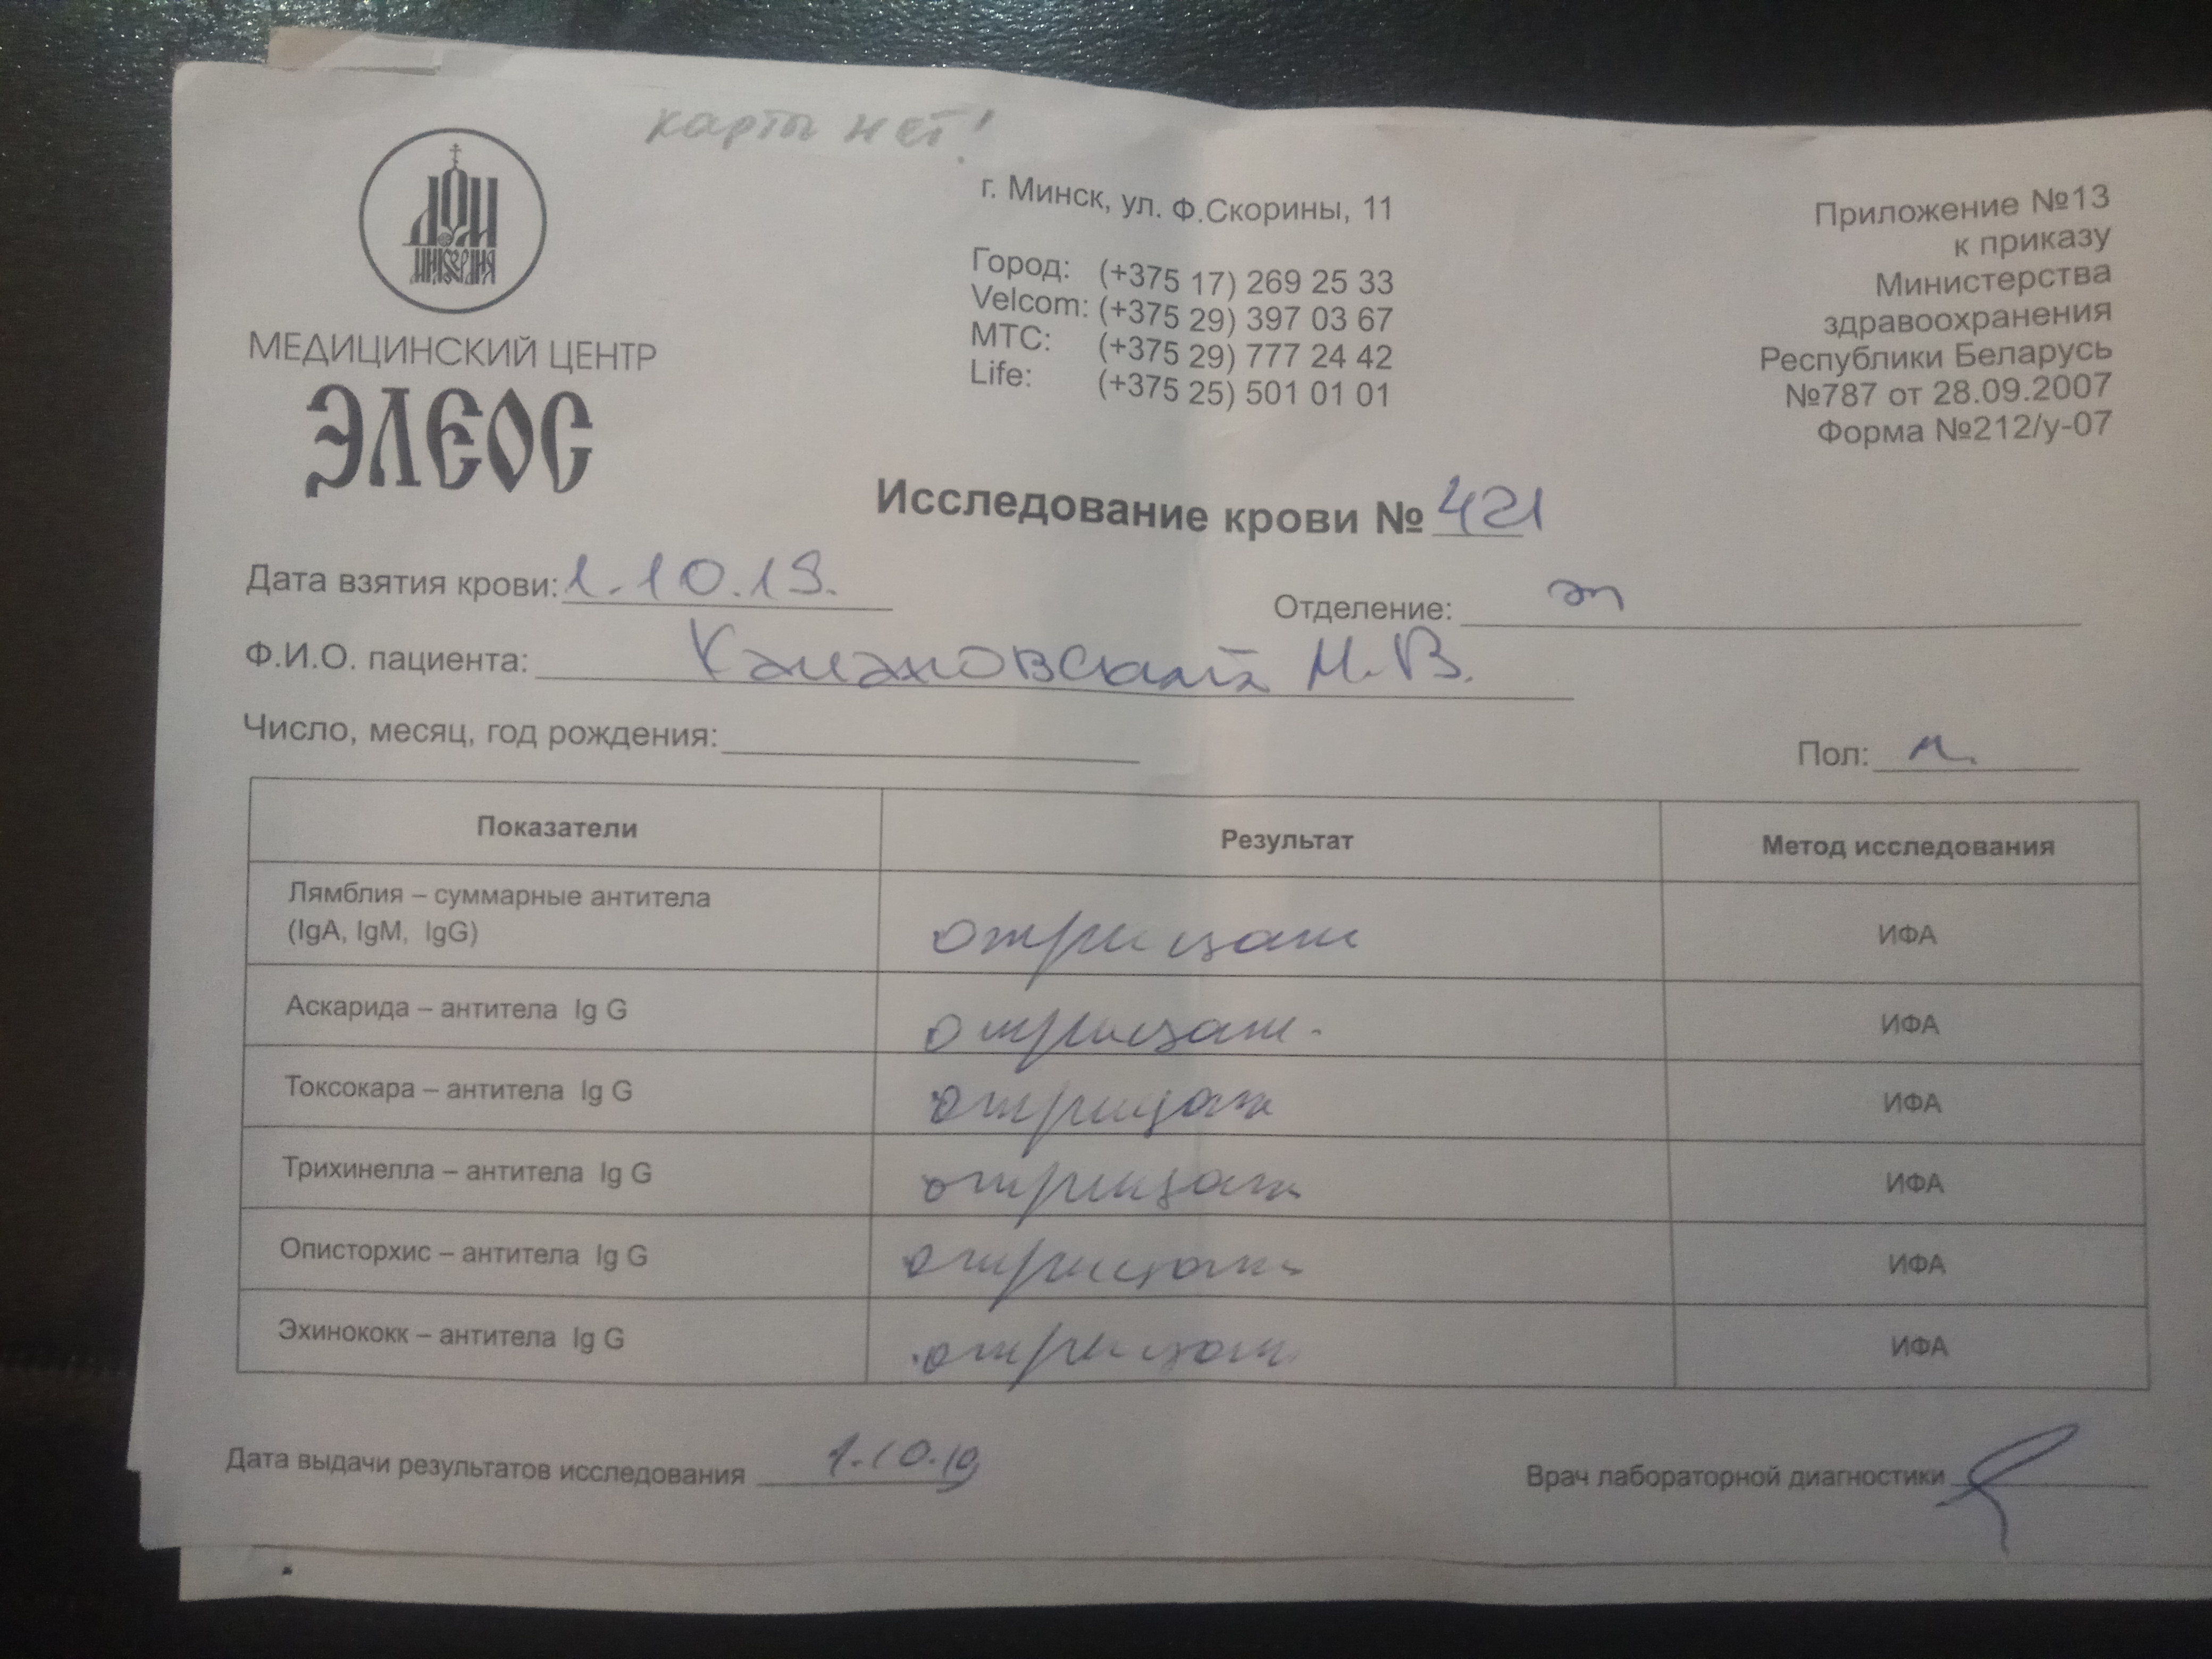 карты нет!
ДОМ
МИЛОСЕРДИЯ
МЕДИЦИНСКИЙ ЦЕНТР
ЭЛЕОС
г. Минск, ул. Ф.Скорины, 11
Город: (+375 17) 269 25 33
Velcom: (+375 29) 397 03 67
МТС: (+375 29) 777 24 42
Life: (+375 25) 501 01 01
Приложение №13
к приказу
Министерства
здравоохранения
Республики Беларусь
№787 от 28.09.2007
Форма №212/у-07
Исследование крови № 421
Дата взятия крови: 1.10.19.
Отделение:
Ф.И.О. пациента: М.В.
Число, месяц, год рождения:
Пол: м.
Показатели Результат Метод исследования
Лямблия – суммарные антитела
(IgA, IgM, IgG) отрицат ИФА
Аскарида – антитела Ig G отрицат. ИФА
Токсокара – антитела Ig G отрицат ИФА
Трихинелла – антитела Ig G отрицат ИФА
Описторхис – антитела Ig G отрицат ИФА
Эхинококк – антитела Ig G отрицат ИФА
Дата выдачи результатов исследования 1.10.19
Врач лабораторной диагностики